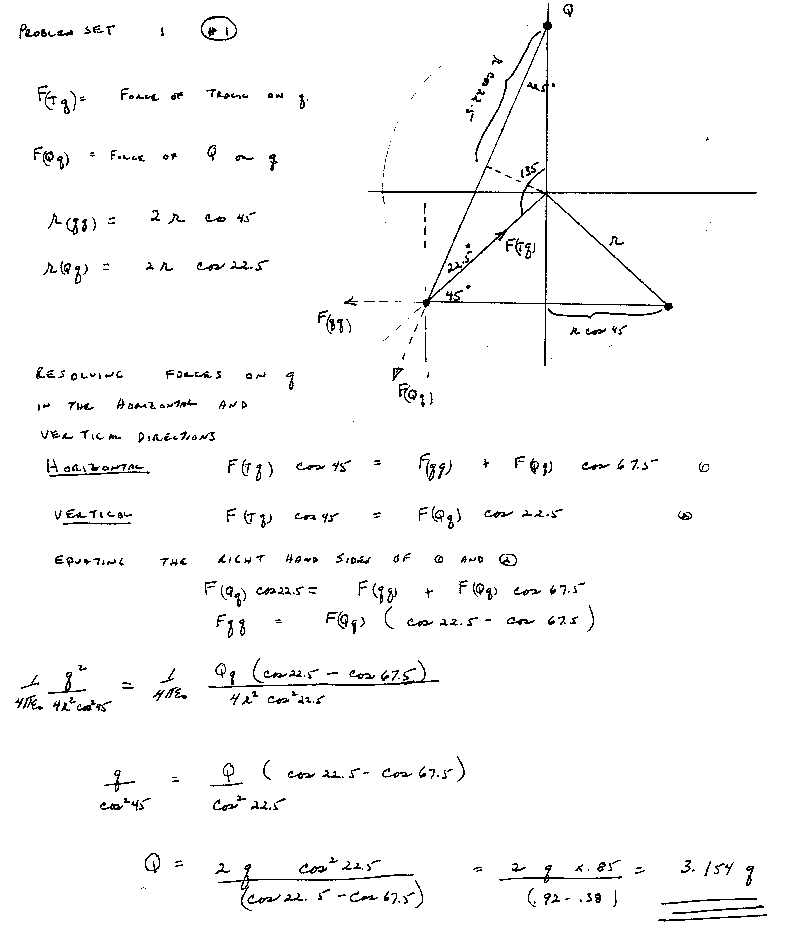 PROBLEM SET 1 #1
Q
r cos 22.5
22.5°
F(Tq) = FORCE OF TRACK ON q
F(Qq) = FORCE OF Q ON q
135
r(qq) = 2 r cos 45
r
F(Tq)
r(Qq) = 2r cos 22.5
22.5°
45°
F(qq)
r cos 45
F(Qq)
RESOLVING FORCES ON q
IN THE HORIZONTAL AND
VERTICAL DIRECTIONS
HORIZONTAL F(Tq) cos 45 = F(qq) + F(Qq) cos 67.5 ①
VERTICAL F(Tq) cos 45 = F(Qq) cos 22.5 ②
EQUATING THE RIGHT HAND SIDES OF ① AND ②
F(Qq) cos 22.5 = F(qq) + F(Qq) cos 67.5
Fqq = F(Qq) ( cos 22.5 - cos 67.5 )
1/4πε₀ q²/4r²cos²45 = 1/4πε₀ Qq (cos 22.5 - cos 67.5)/4r² cos²22.5
q/cos²45 = Q ( cos 22.5 - cos 67.5 )/cos² 22.5
Q = 2 q cos² 22.5/(cos 22.5 - cos 67.5) = 2 q x .85/(.92 - .38) = 3.154 q